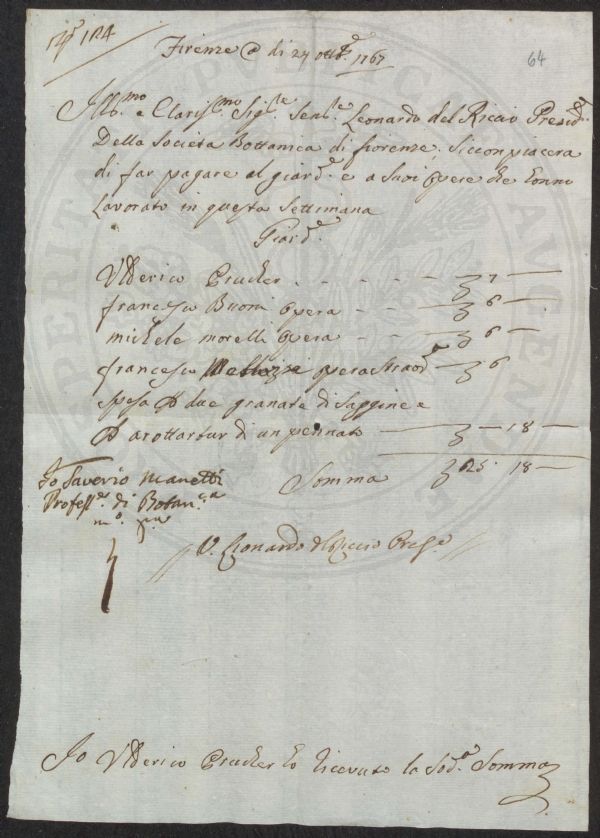 124
64
Firenze @ di 24 ottb.e 1767
Ill.mo e Clariss.mo Sig.re Sen.re Leonardo del Riccio Presid.e
Della Società Bottanica di fiorenze; si conpiacera
di far pagare al giard.e e a suoi opere che konno
Lavorato in questa Settimana
Giard.e
Ulderico Prucker - - - - 7 -
francesco Buoni opera - - 6 -
michele morelli opera - - 6 -
francesco opera straord.a - 6
spesa P due granate di Saggine e
P arottartur di un pennato - 18 -
Somma 25. 18 -
Io Saverio Manetti
Profess.re di Botan.ca
m.o pa
V. Lionardo del Riccio Pres.e
Io Ulderico Prucker ho ricevuto la Sod.a Somma